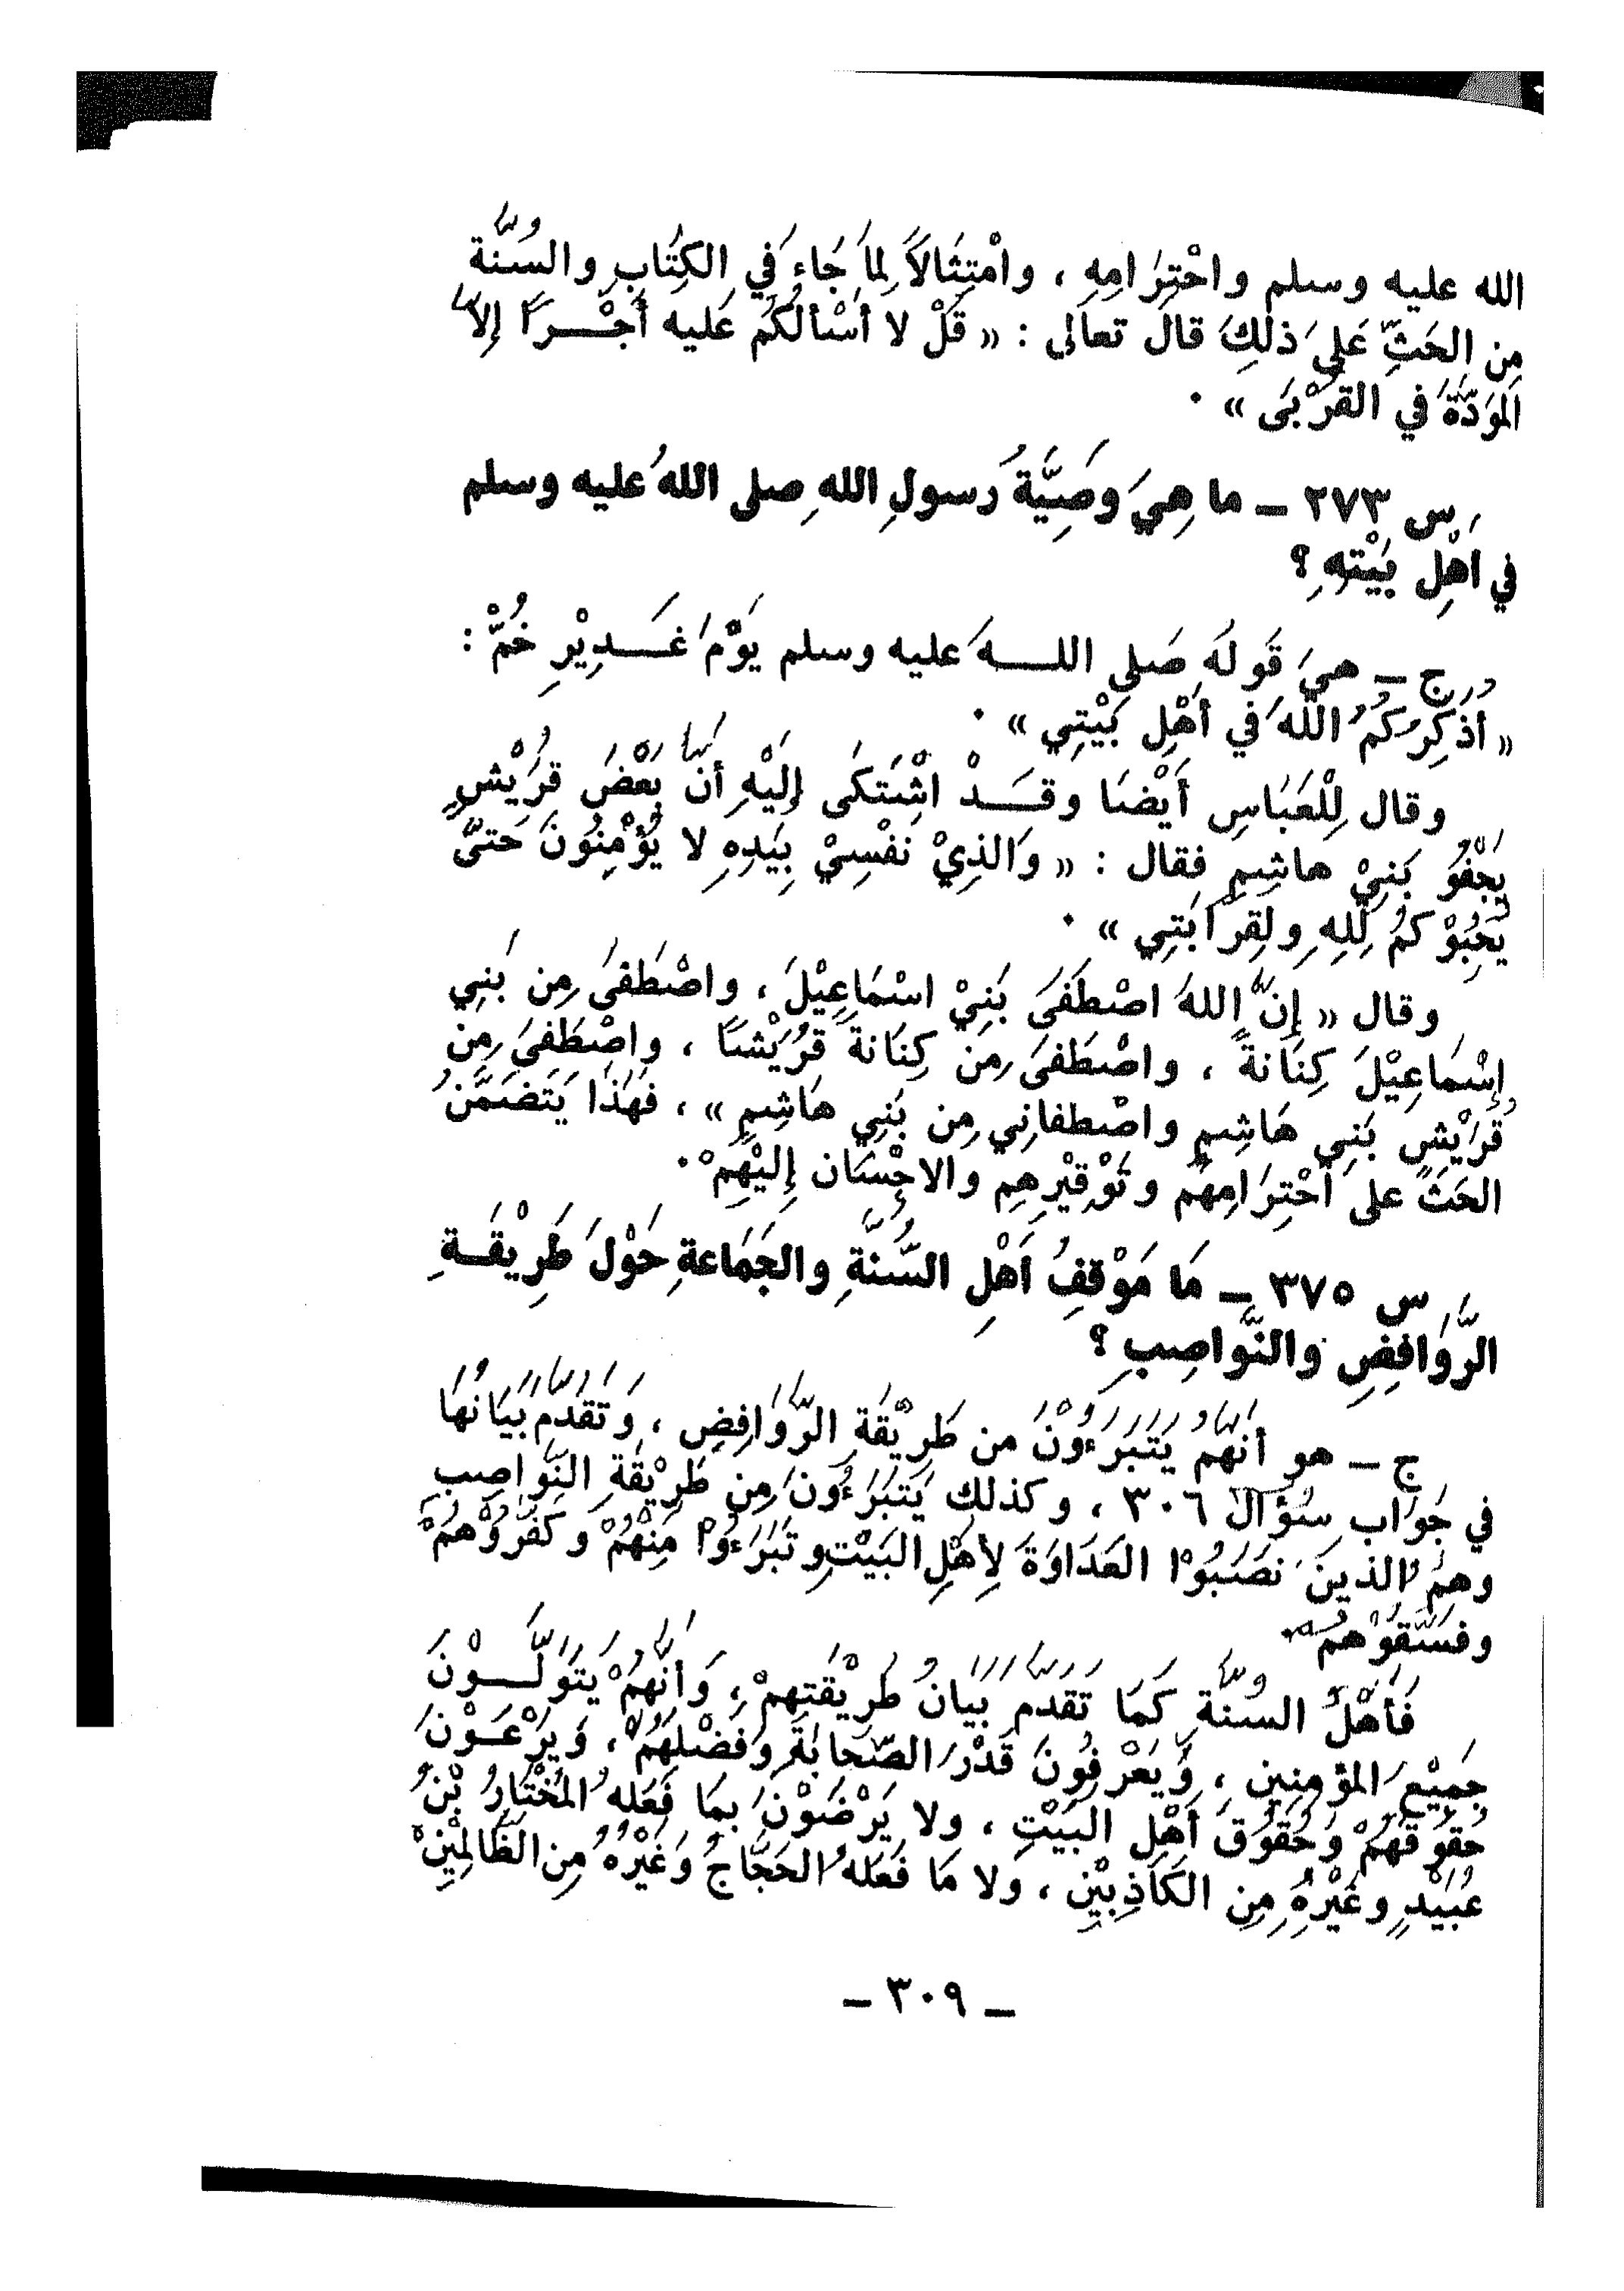 الله عليه وسلم واحْتِرَامِهِ ، وامْتِثَالاً لِمَا جَاءَ في الكِتَابِ والسُنَّة
مِن الحَثِّ عَلى ذلِكَ قالَ تعالى : « قُلْ لا أسْألُكُم عَليه أجْـــرًا إلاَّ
المَوَدَّةَ في القُرْبَى » ٠
س ٢٧٣ ــ ما هِيَ وصِيَّةُ رسولِ اللهِ صلى اللهُ عليه وسلم
في أهْلِ بَيْتِهِ ؟
ج ــ هيَ قَولُه صَلى اللـــهُ عليه وسلم يَوْمَ غَـــدِيْرِ خُمٍّ :
« أُذَكِّرُكُمُ اللهَ في أهْلِ بَيْتِي » ٠
وقال لِلْعَبَاسِ أيْضا وقَـــدْ اشْتَكَى إليْهِ أنَّ بَعْضَ قُرَيْشٍ
يَجْفُو بَنِيْ هاشِمٍ فقال : « والذِيْ نَفْسِيْ بِيَدِهِ لا يُؤْمِنُونَ حَتىَّ
يُحِبُوْكمُ لِلهِ ولِقرَابَتِي » ٠
وقال « إنَّ اللهَ اصْطَفَى بَنِيْ اسْمَاعِيْلَ ، واصْطَفىَ مِن بَنِي
إسْمَاعِيْلَ كِنَانةً ، واصْطَفىَ مِنْ كِنَانةَ قُرَيْشًا ، واصْطَفىَ مِن
قُرَيْشٍ بَنِي هَاشِمٍ واصْطفانِي مِن بَنِي هَاشِمٍ » ، فهَذَا يَتَضَمَّنُ
الحَثَّ على احْتِرَامِهمُ وتَوْقِيْرِهِم والاحْسَان إليْهِمْ ٠
س ٣٧٥ ــ مَا مَوْقِفُ أهْلِ السُّنَّةِ والجَمَاعةِ حَوْلَ طَرِيْقَــةِ
الرَّوَافِضِ والنَّواصِبِ ؟
ج ــ هو أنَّهُم يَتَبَرَءُوْنَ من طَرِيْقَةِ الرَّوَافِضِ ، وَتقَدَّمَ بَيَانُهَا
في جَوَاب سُؤَال ٣٠٦ ، وكذلك يَتَبَرَءُونَ مِن طَرِيْقَةِ النَّواصِب
وهمُ الذينَ نصَبُوْا العَدَاوَةَ لِأهْلِ البَيْتِ وتَبَرَءُوْا مِنْهُمْ وكَفَّرُوْهمُ
وفسَّقوْهمُ ٠
فَأهْلُ السُنَّةِ كَمَا تقَدَّمَ بَيَانُ طَرِيْقَتِهِمْ ، وَأنَّهُمْ يَتَوَلَّـــوْنَ
جَمِيْعَ المؤمِنِين ، وَيَعْرِفُونَ قَدْرَ الصَّحَابَةِ وَفضْلَهُمْ ، وَيَرْعَـوْنَ
حُقوْقَهُمْ وَحُقوْقَ أهْلِ البَيْتِ ، ولا يَرْضَوْنَ بِمَا فَعَله المُخْتَارُ بْنُ
عُبَيْدٍ وغَيْرُهُ مِن الكَاذِبِيْنِ ، ولا مَا فَعَلهُ الحَجَّاجُ وَغَيْرُهُ مِن الظَّالِمِيْنِ
ــ ٣٠٩ ــ